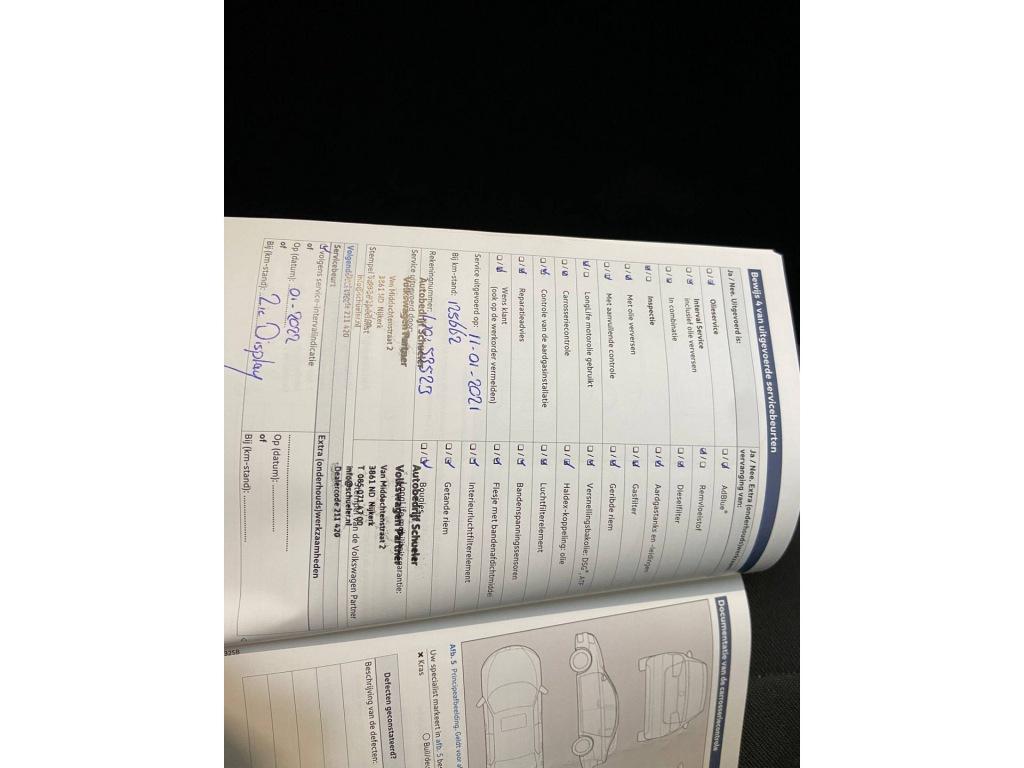 Bewijs 4 van uitgevoerde servicebeurten
Ja / Nee. Uitgevoerd is:
Olieservice
Interval Service
inclusief olie verversen
In combinatie
Inspectie
Met olie verversen
Met aanvullende controle
LongLife motorolie gebruikt
Carrosseriecontrole
Controle van de aardgasinstallatie
Reparatieadvies
Wens klant
(ook op de werkorder vermelden)
Service uitgevoerd op: 11-01-2021
Bij km-stand: 125662
Rekeningnummer:
Service uitgevoerd door:
Autobedrijf Schueler
Volkswagen Partner
Van Middachtenstraat 2
3861 ND Nijkerk
info@schueler.nl
Dealercode 211 420
Servicebeurt
volgens service-intervalindicatie
of
Op (datum): 01-2022
of
Bij (km-stand): Zie Display
Ja / Nee. Extra (onderhouds)
vervanging van:
AdBlue®
Remvloeistof
Dieselfilter
Aardgastanks en -leidingen
Gasfilter
Geribde riem
Versnellingsbakolie: DSG®, ATF
Haldex-koppeling: olie
Luchtfilterelement
Bandenspanningssensoren
Flesje met bandenafdichtmiddel
Interieurluchtfilterelement
Getande riem
Bougies
Autobedrijf Schueler
Volkswagen Partner
Van Middachtenstraat 2
3861 ND Nijkerk
info@schueler.nl
Dealercode 211 420
van de Volkswagen Partner
Extra (onderhouds)werkzaamheden
Op (datum):
of
Bij (km-stand):
Documentatie van de carrosseriecontrole
Afb. 5 Principeafbeelding. Geldt voor
Uw specialist markeert in afb. 5
Kras
Defecten geconstateerd?
Beschrijving van de defecten: